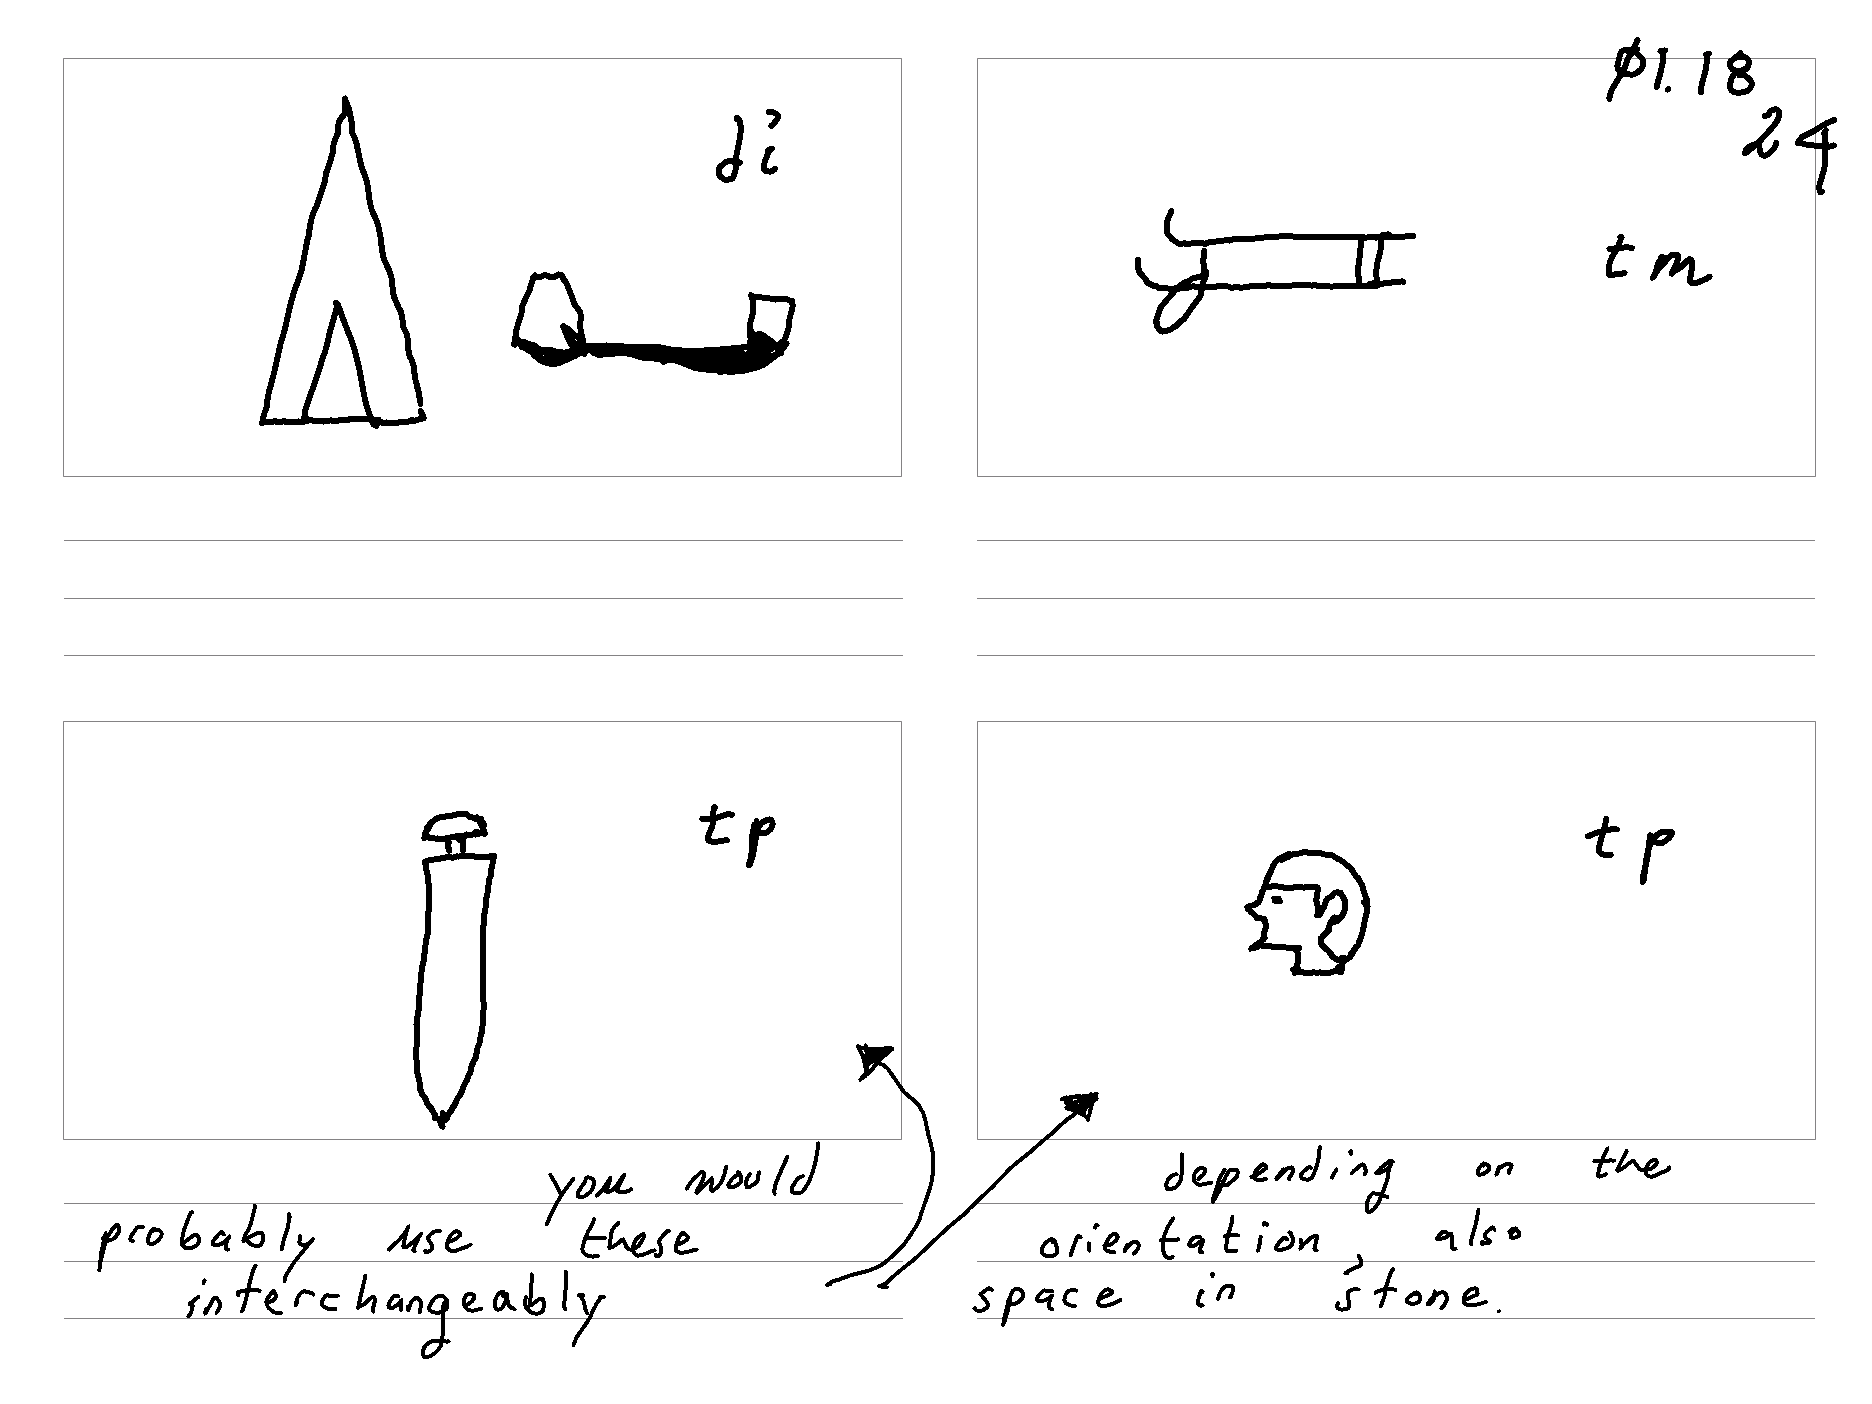 01.18
24
di
tm
tp
tp
you would
probably use these
interchangeably
depending on the
orientation, also
space in stone.